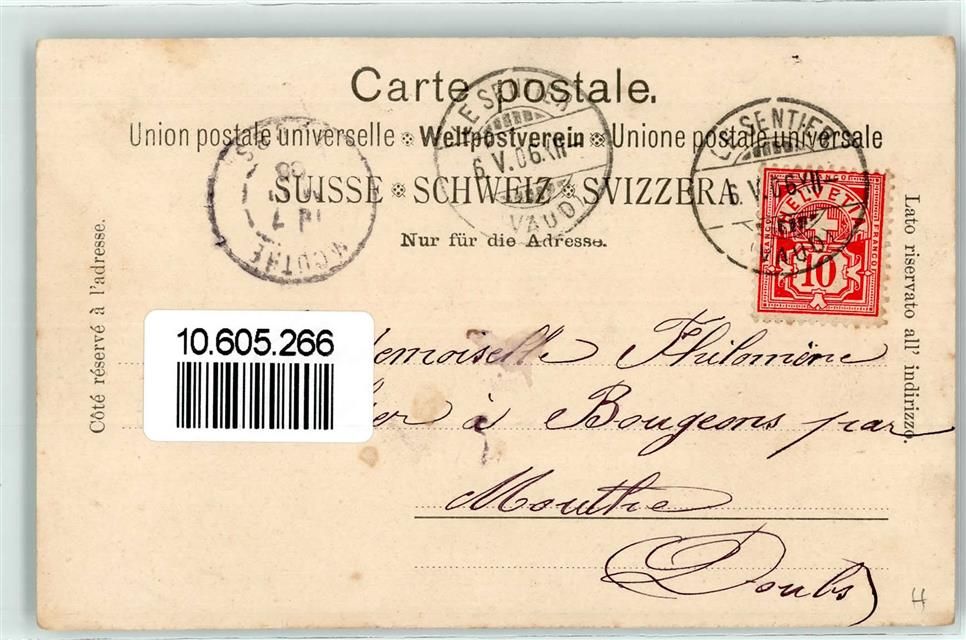 Carte postale.
Union postale universelle ※ Weltpostverein ※ Unione postale universale
SUISSE ※ SCHWEIZ ※ SVIZZERA
Nur für die Adresse.
Côté réservé à l'adresse.
Lato riservato all' indirizzo.
LE SENTIER
6.V.06.XII
(VAUD)
LE SENTIER
6.V.06.XII
VAUD
MOUTHE
HELVETIA
FRANCO
FRANCO
10
10.605.266
demoiselle Philomène
à Bougeons par
Mouthe
Doubs
H